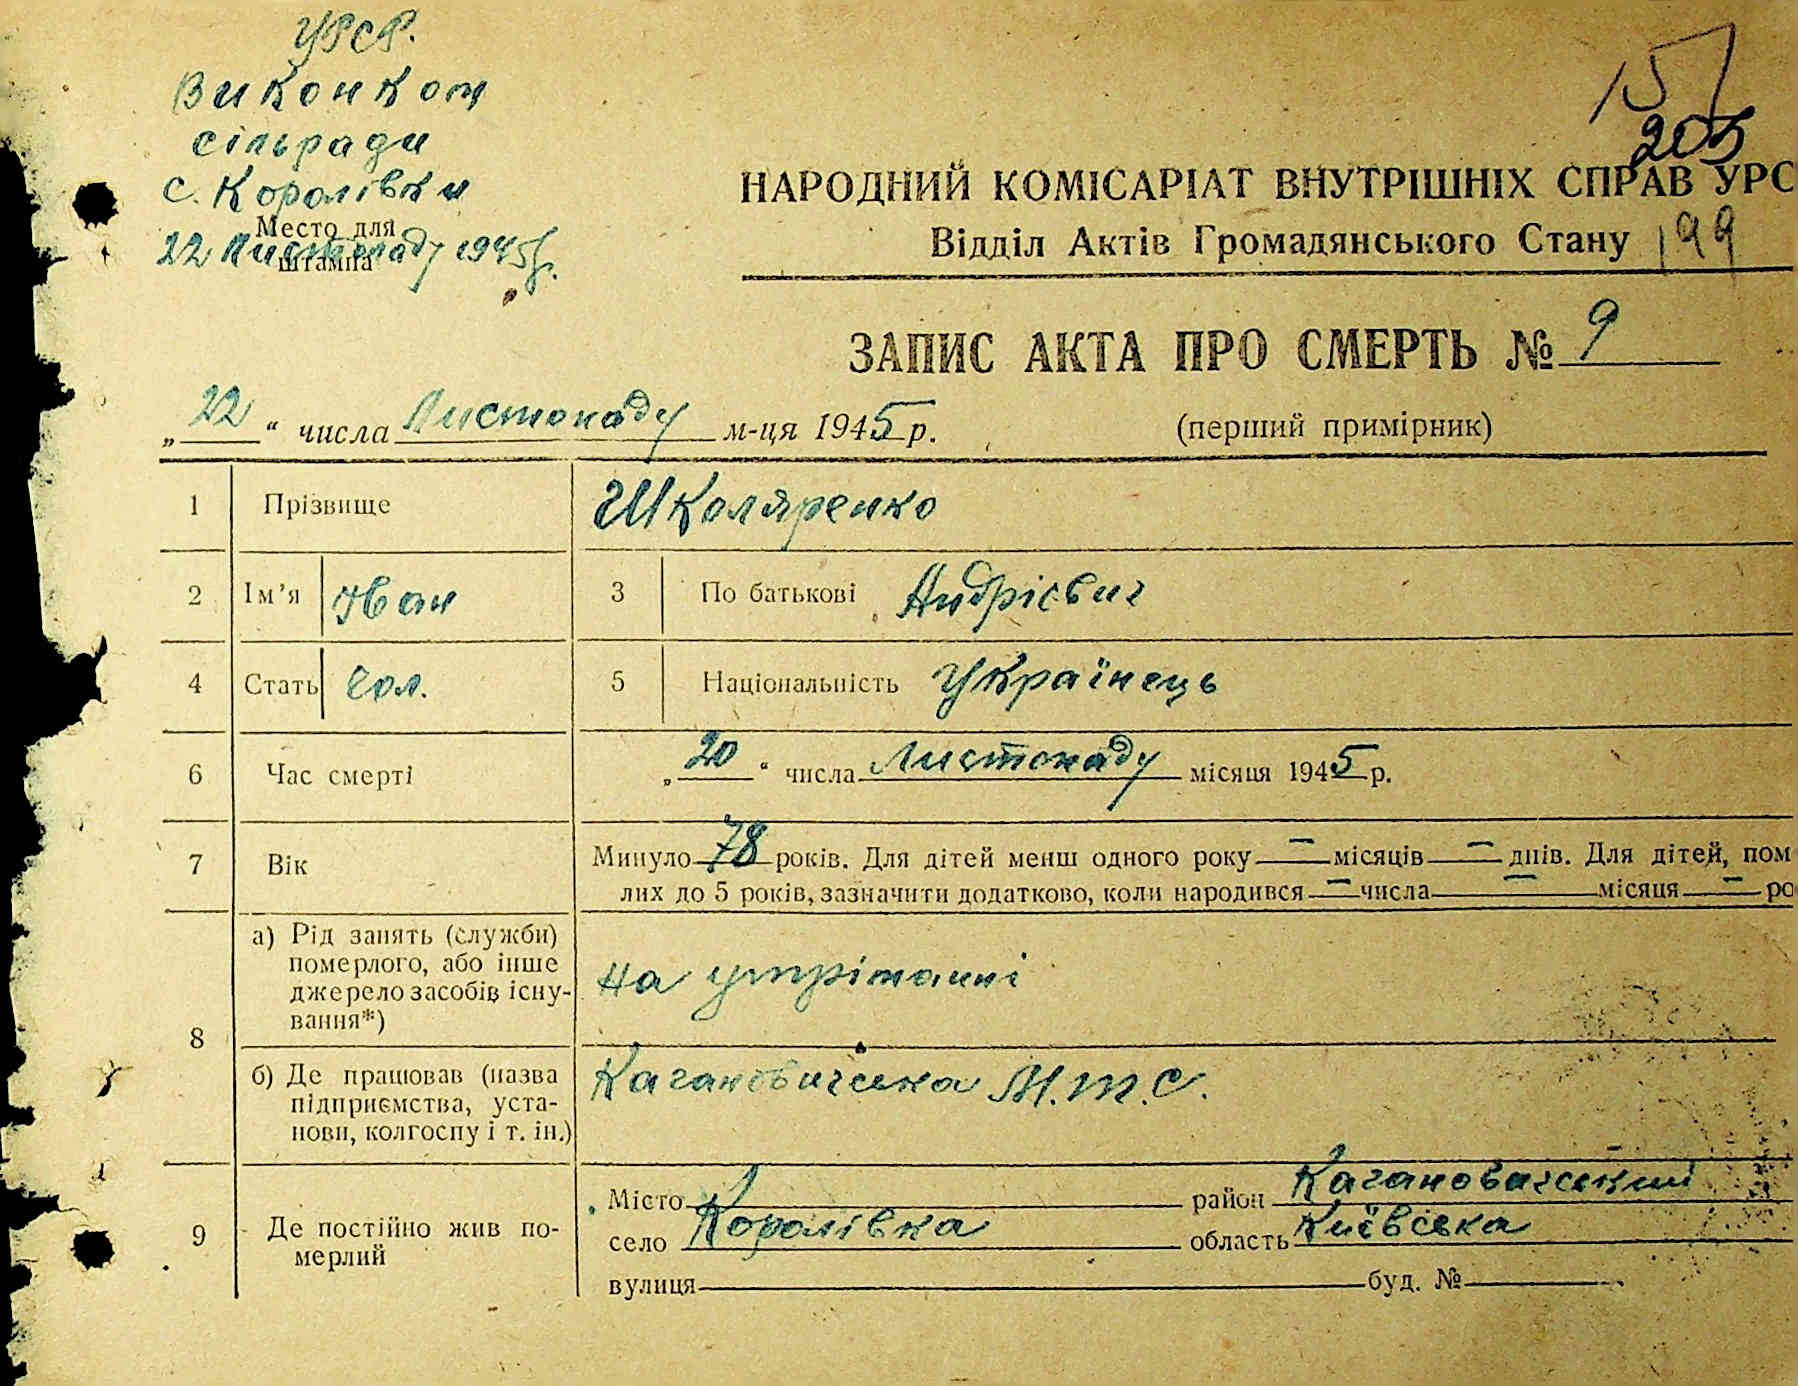 УРСР.
Виконком
сільради
с. Королівки
Место для
штампа
22 Листопаду 1945 р.
157
205
НАРОДНИЙ КОМІСАРІАТ ВНУТРІШНІХ СПРАВ УРС
Відділ Актів Громадянського Стану 199
ЗАПИС АКТА ПРО СМЕРТЬ № 9
„22“ числа Листопаду м-ця 1945 р. (перший примірник)
1 Прізвище Школяренко
2 Ім’я Іван 3 По батькові Андрієвич
4 Стать чол. 5 Національність Українець
6 Час смерті „20“ числа Листопаду місяця 1945 р.
7 Вік Минуло 78 років. Для дітей менш одного року — місяців — днів. Для дітей, пом
лих до 5 років, зазначити додатково, коли народився — числа — місяця — ро
8 а) Рід занять (служби)
померлого, або інше
джерело засобів існу-
вання*)
На утріманні
б) Де працював (назва
підприємства, уста-
нови, колгоспу і т. ін.)
Кагановичська М.Т.С.
9 Де постійно жив по-
мерлий
Місто район Кагановичський
село Королівка область Київська
вулиця буд. №